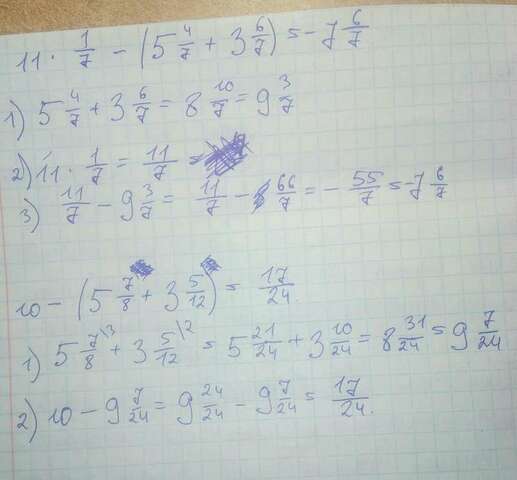 11 · 1/7 - (5 4/7 + 3 6/7) = -7 6/7
1) 5 4/7 + 3 6/7 = 8 10/7 = 9 3/7
2) 11 · 1/7 = 11/7
3) 11/7 - 9 3/7 = 11/7 - 66/7 = - 55/7 = -7 6/7
10 - (5 7/8 + 3 5/12) = 17/24.
1) 5 7/8 \3 + 3 5/12 \2 = 5 21/24 + 3 10/24 = 8 31/24 = 9 7/24
2) 10 - 9 7/24 = 9 24/24 - 9 7/24 = 17/24.